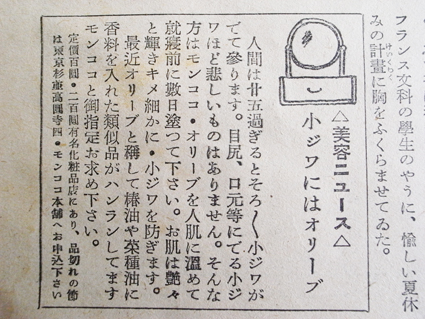 フランス文科の學生のやうに、愉しい夏休
みの計畫に胸をふくらませてゐた。
△美容ニュース△
小ジワにはオリーブ
人間は廿五過ぎるとそろ〱小ジワが
でて參ります。目尻、口元等にでる小ジ
ワほど悲しいものはありません。そんな
方はモンココ・オリーブを人肌に溫めて
就寢前に數日塗つて下さい。お肌は艷々
と輝きキメ細かに・小ジワを防ぎます。
最近オリーブと稱して椿油や菜種油に
香料を入れた類似品がハンランしてます
モンココと御指定お求め下さい。
定價百圓・二百圓有名化粧品店にあり、品切れの節
は東京杉並高圓寺四・モンココ本舗へお申込下さい